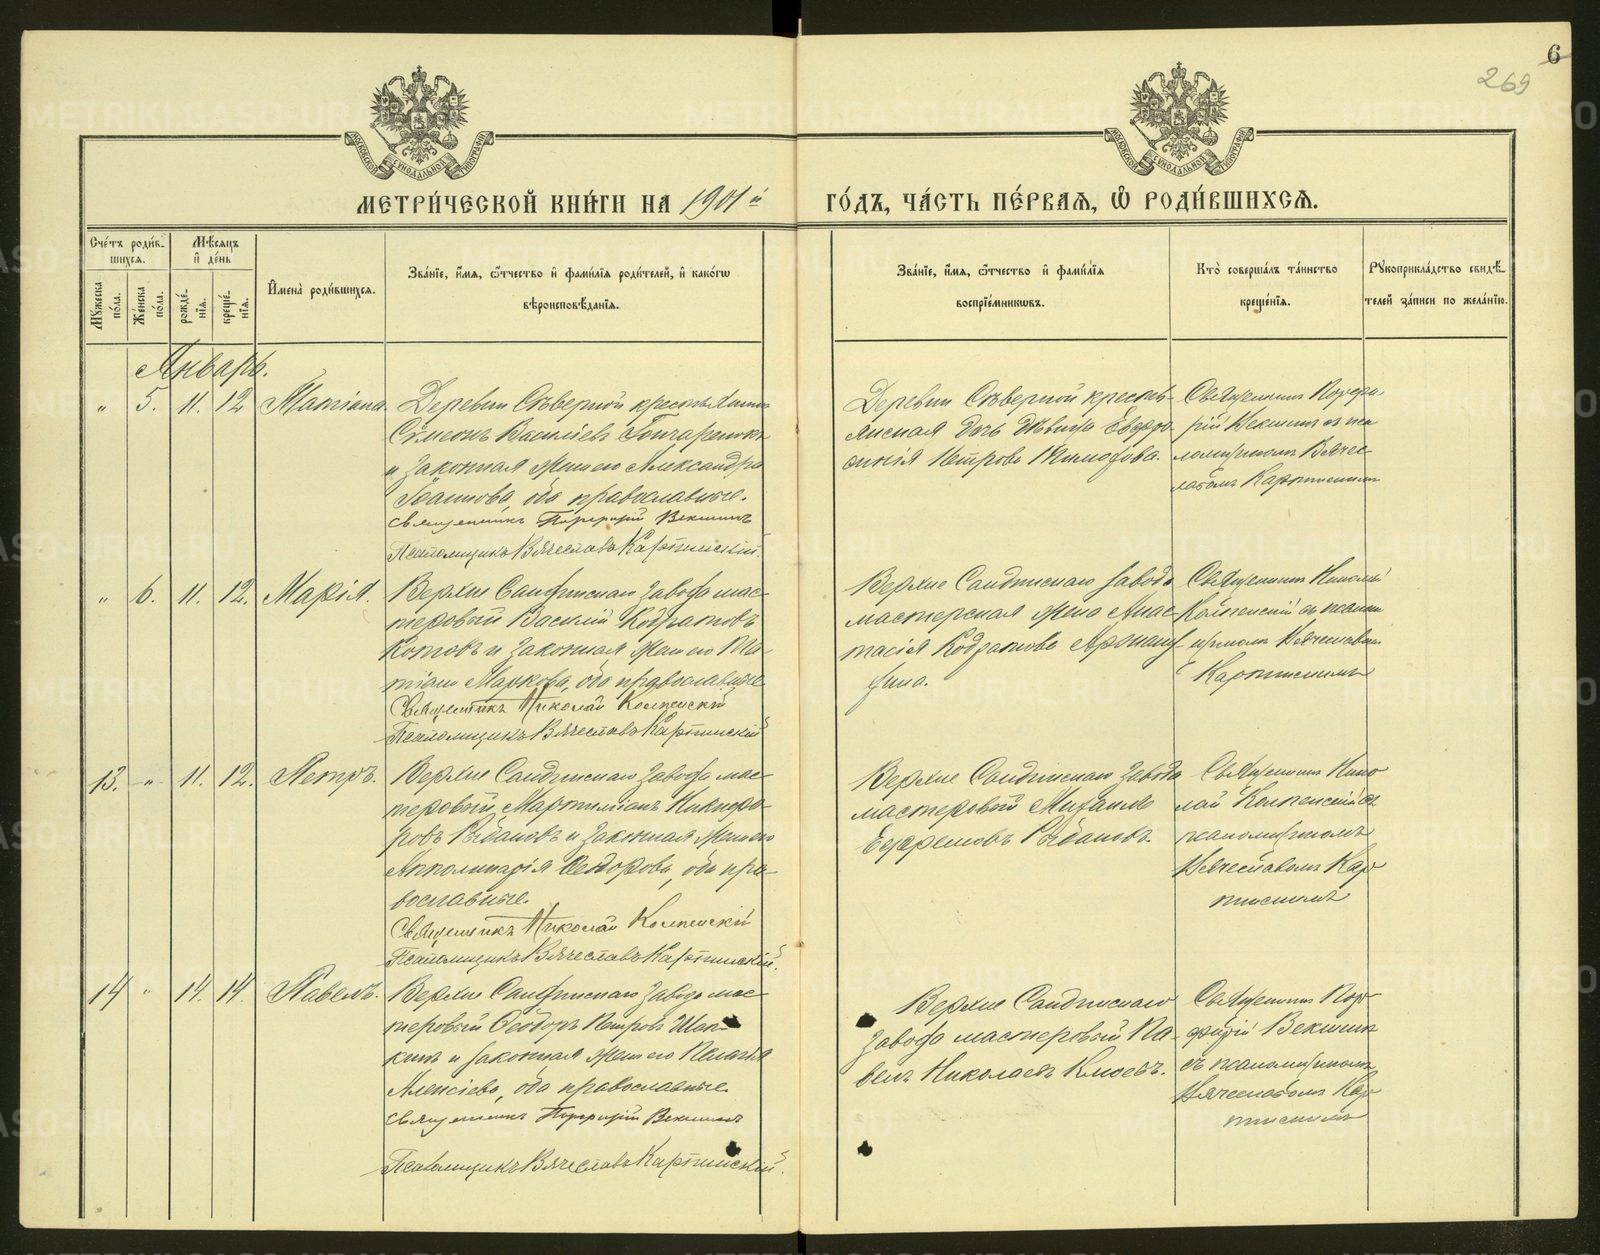 6
269
МЕТРИ́ЧЕСКОЙ КНИ́ГИ НА 1901 й ГО́ДЪ, ЧА́СТЬ ПЕ́РВАѦ, Ѡ҆ РОДИ́ВШИХСѦ.
МОСКОВСКОЙ СѴНОДАЛЬНОЙ ТИПОГРАФІИ
МОСКОВСКОЙ СѴНОДАЛЬНОЙ ТИПОГРАФІИ
Сче́тъ роди́в-
шихсѧ.
Мꙋжеска по́ла.
Же́нска по́ла.
Мѣ́сѧцъ
и҆ де́нь
рожде́-
нїѧ.
креще́-
нїѧ.
И҆мена̀ роди́вшихсѧ.
Зва́нїе, и҆́мѧ, ѻ҆́тчество и҆ фами́лїѧ роди́телей, и҆ како́гѡ
вѣроисповѣ́данїѧ.
Зва́нїе, и҆́мѧ, ѻ҆́тчество и҆ фами́лїѧ
воспрїе́мникѡвъ.
Кто̀ соверша́лъ та́инство
креще́нїѧ.
Рꙋкоприкла́дство свидѣ́-
телей за́писи по жела́нїю.
Январь.
„ 5. 11. 12 Татіана.
Деревни Северной
Симеонъ Василіевъ Гончаренокъ
и законная жена его Александра
Іоаннова, оба православные.
Священникъ Порфирій Векшинъ
Псаломщикъ Вячеславъ Карпинскій.
Деревни Северной кресть-
янская дочь девица Евдо-
кія Петрова
Священникъ Порфи-
рій Векшинъ съ пса
ломщикомъ Вячес-
лавомъ Карпинскимъ
„ 6. 11. 12. Марія.
Верхне Салдинскаго завода мас-
теровый Василій Кодратовъ
Котовъ и законная жена его Та-
тіана Маркова, оба православные
Священникъ Николай
Псаломщикъ Вячеславъ Карпинскій
Верхне Салдинскаго завода
мастерская жена Анас-
тасія Кодратова
Священникъ Николай
съ псалом
щикомъ Вячеславомъ
Карпинскимъ
13. „ 11. 12. Петръ.
Верхне Салдинскаго завода мас-
теровый Мартиміанъ Никифо-
ровъ и законная жена его
Апполинарія Феодорова, оба пра-
вославные.
Священникъ Николай
Псаломщикъ Вячеславъ Карпинскій.
Верхне Салдинскаго завода
мастеровый Михаилъ
Ефремовъ
Священникъ Нико
лай съ
псаломщикомъ
Вячеславомъ Кар
пинскимъ
14 „ 14. 14. Павелъ.
Верхне Салдинскаго завода мас-
теровый Феодоръ Петровъ
и законная жена его Пелагія
Алексіева, оба православные
Священникъ Порфирій Векшинъ
Псаломщикъ Вячеславъ Карпинскій.
Верхне Салдинскаго
завода мастеровый Па-
велъ Николаевъ Клюевъ.
Священникъ Пор-
фирій Векшинъ
съ псаломщикомъ
Вячеславомъ Кар
пинскимъ
METRIKI.GASO-URAL.RU